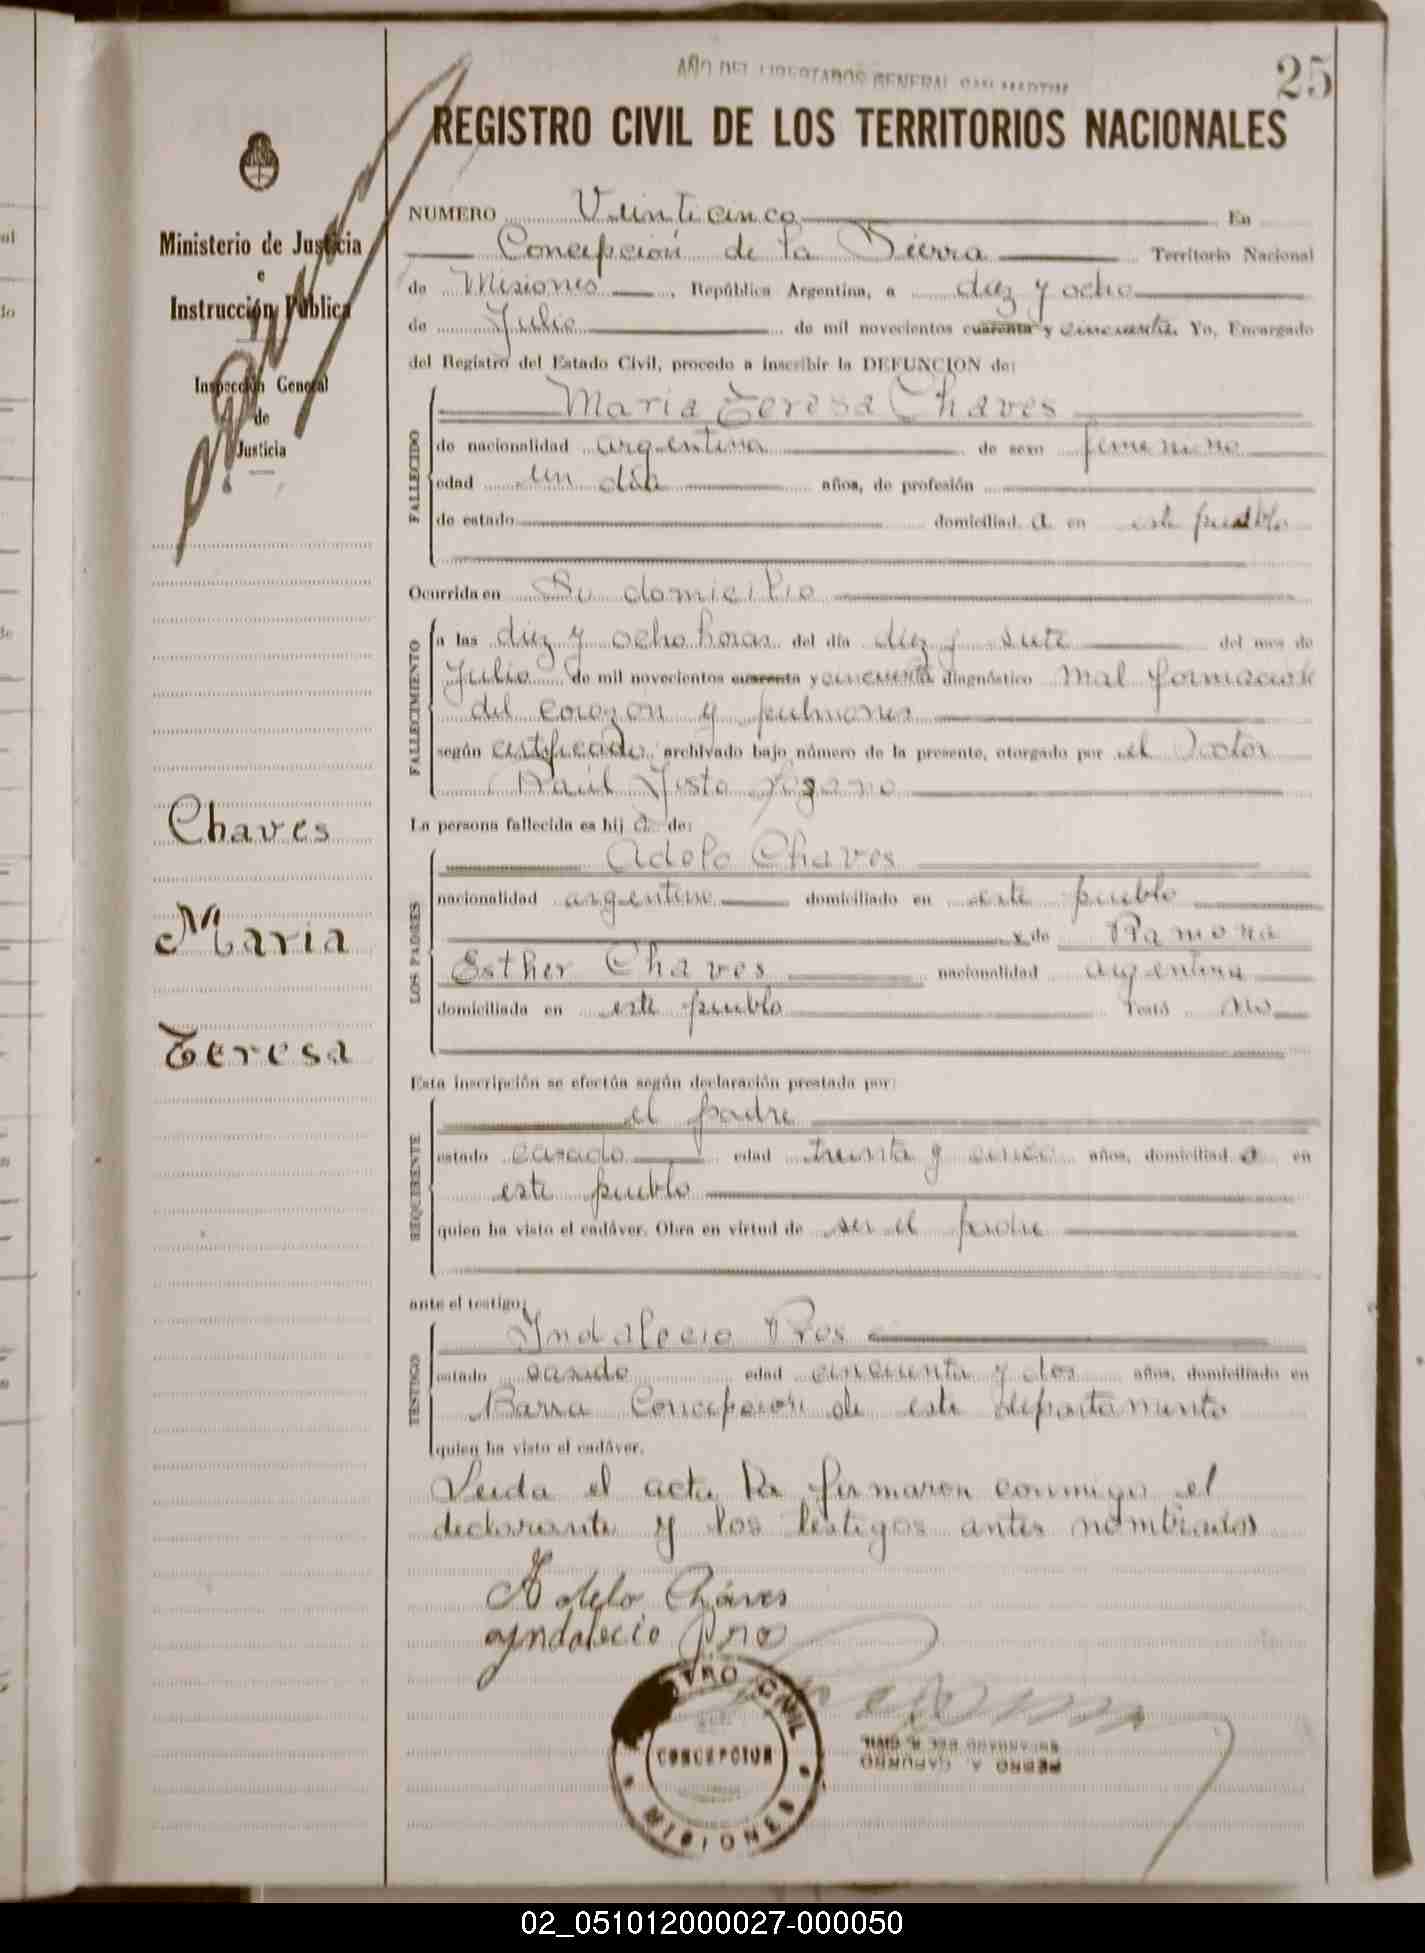 AÑO DEL LIBERTADOR GENERAL SAN MARTIN
25
REGISTRO CIVIL DE LOS TERRITORIOS NACIONALES
Ministerio de Justicia
e
Instrucción Pública
Inspección General
de
Justicia
Chaves
Maria
Teresa
NUMERO Veinticinco En
Concepción de la Sierra Territorio Nacional
de Misiones, República Argentina, a diez y ocho
de Julio de mil novecientos cuarenta y cincuenta Yo, Encargado
del Registro del Estado Civil, procedo a inscribir la DEFUNCION de:
FALLECIDO
Maria Teresa Chaves
de nacionalidad argentina de sexo femenino
edad un día años, de profesión
de estado domiciliad a en este pueblo
Ocurrida en Su domicilio
FALLECIMIENTO
a las diez y ocho horas del día diez y siete del mes de
Julio de mil novecientos cuarenta y cincuenta diagnóstico mal formacion
del corozon y pulmones
según certificado archivado bajo número de la presente, otorgado por el Doctor
Raúl Justo
La persona fallecida es hij a de:
LOS PADRES
Adelo Chaves
nacionalidad argentino domiciliado en este pueblo
y de Ramona
Esther Chaves nacionalidad argentina
domiciliada en este pueblo Testó no
Esta inscripción se efectúa según declaración prestada por:
REQUIRENTE
el padre
estado casado edad treinta y cinco años, domiciliad o en
este pueblo
quien ha visto el cadáver. Obra en virtud de ser el padre
ante el testigo:
TESTIGO
Indalecio Pros
estado casado edad cincuenta y dos años, domiciliado en
Barra Concepcion de este departamento
quien ha visto el cadáver.
Leida el acta la firmaron conmigo el
declarante y los testigos antes nombrados
Adelo Cháves
Yndalecio
REGISTRO CIVIL
CONCEPCION
MISIONES
PEDRO A. CAPURRO
ENCARGADO DEL R. CIVIL
02_051012000027-000050